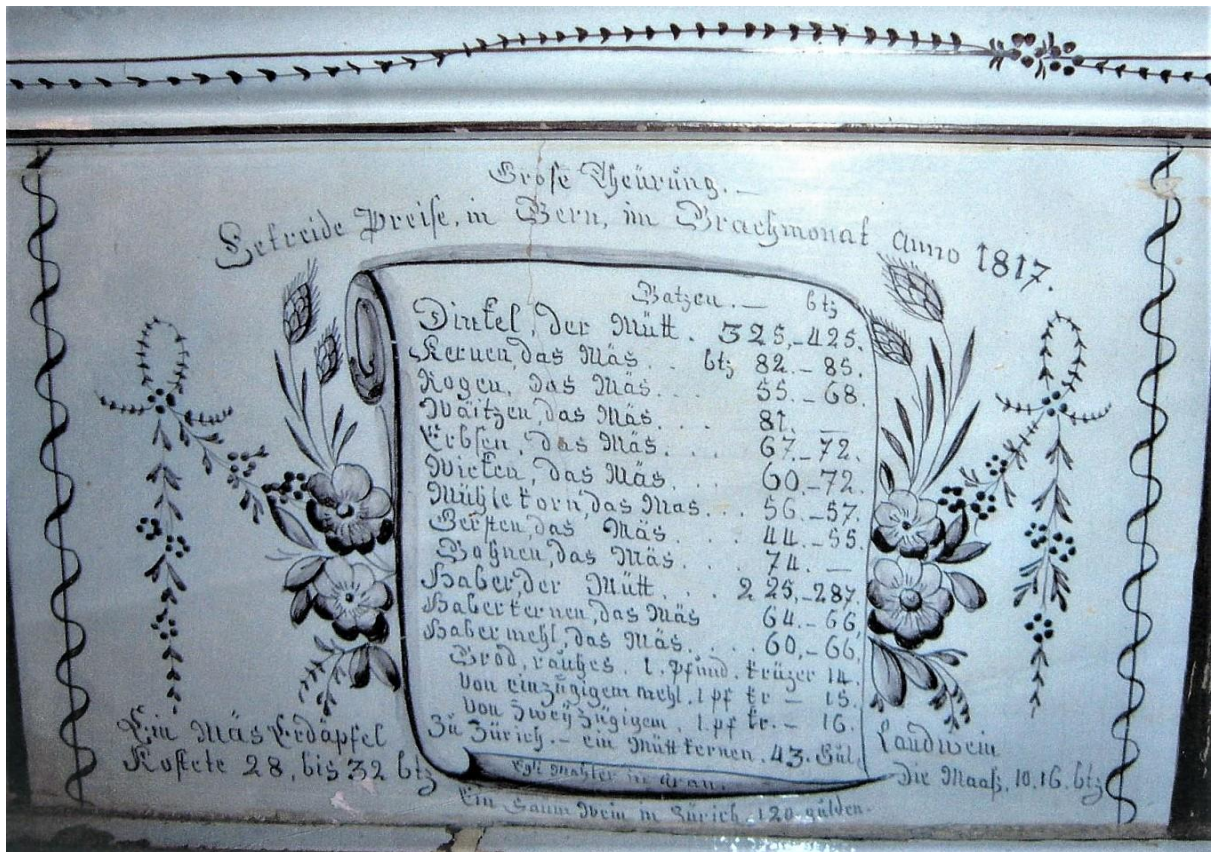 Große Theürung. —
Getreide Preise, in Bern, im Brachmonat Anno 1817.
Batzen. — btz
Dinkel, der Mütt. 325,-425.
Kernen, das Mäs. . . btz 82.- 85.
Rogen, das Mäs. . . . 55.- 68.
Wäitzen, das Mäs. . . . 81. —
Erbsen, das Mäs. . . . 67.-72.
Wicken, das Mäs. . . . 60.-72.
Mühlekorn, das Mas. . . 56.-57.
Gersten, das Mäs. . . . 44.-55.
Bohnen, das Mäs. . . . 74. —
Haber, der Mütt . . . 225,-287.
Haberkernen, das Mäs 64.-66.
Habermehl, das Mäs. . . . 60,-66,
Brod, rauhes. 1. Pfund. krüzer 14.
von einzügigem mehl. 1 pf kr — 15.
von zweÿ zügigem, 1. pf kr. — 16.
Zu Zürich. — ein Mütt kernen. 43. Gül.
Egli Mahler in Arau.
Ein Mäs Erdäpfel
Kostete 28, bis 32 btz
Landwein
die Maaß, 10.16. btz
Ein Saum Wein in Zürich, 120 gülden.